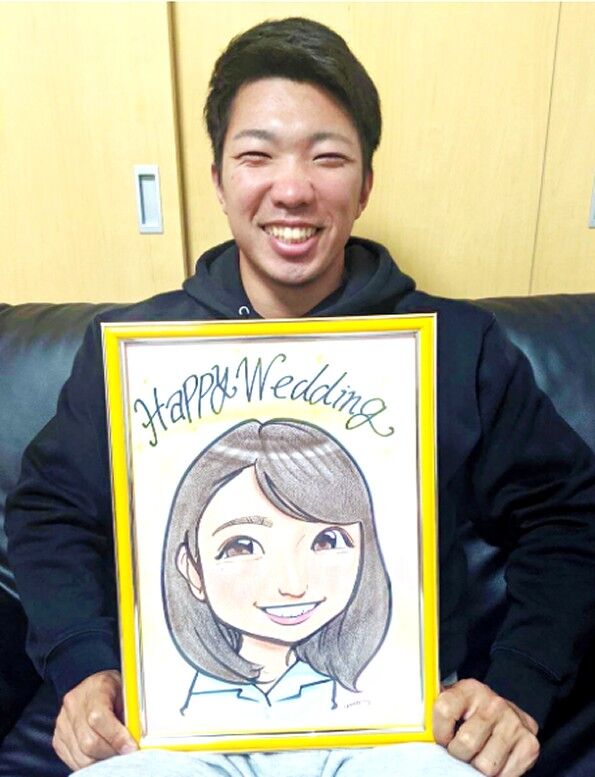 Happy Wedding